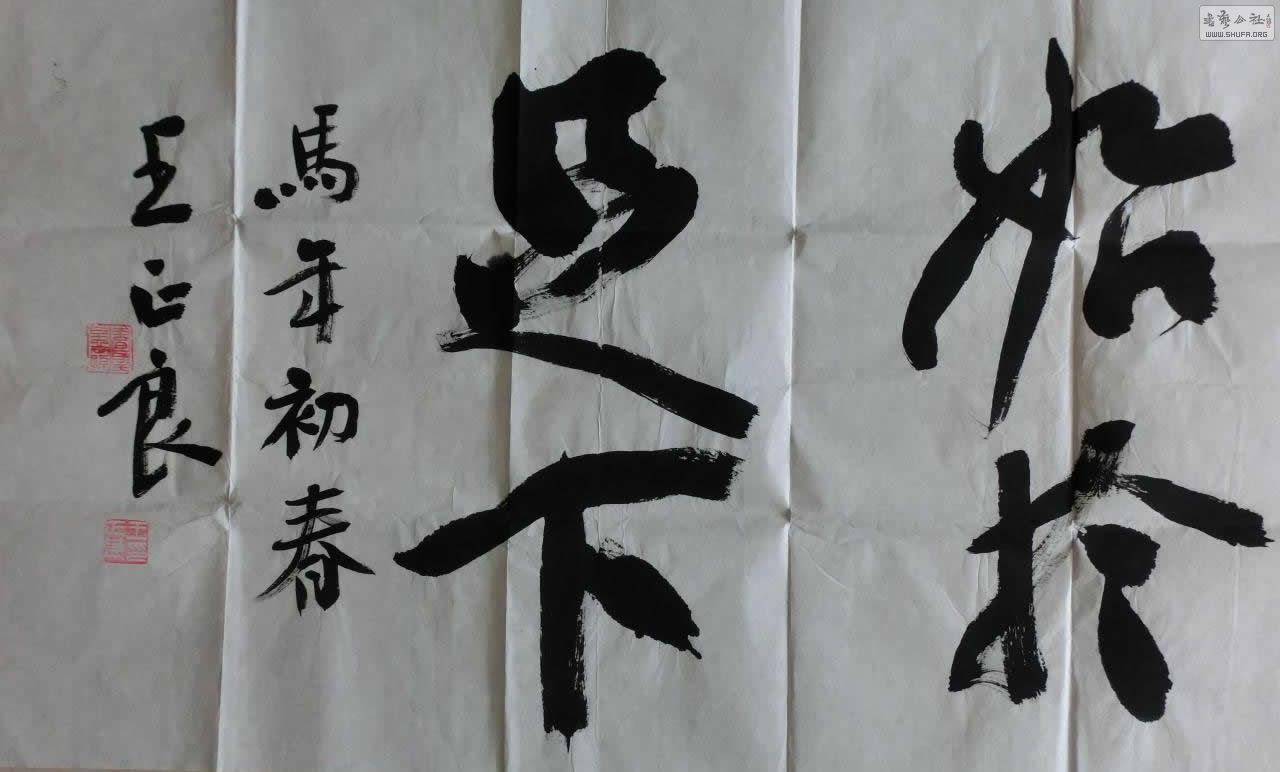 始於
足下
馬年初春
王正良
书艺公社
WWW.SHUFA.ORG